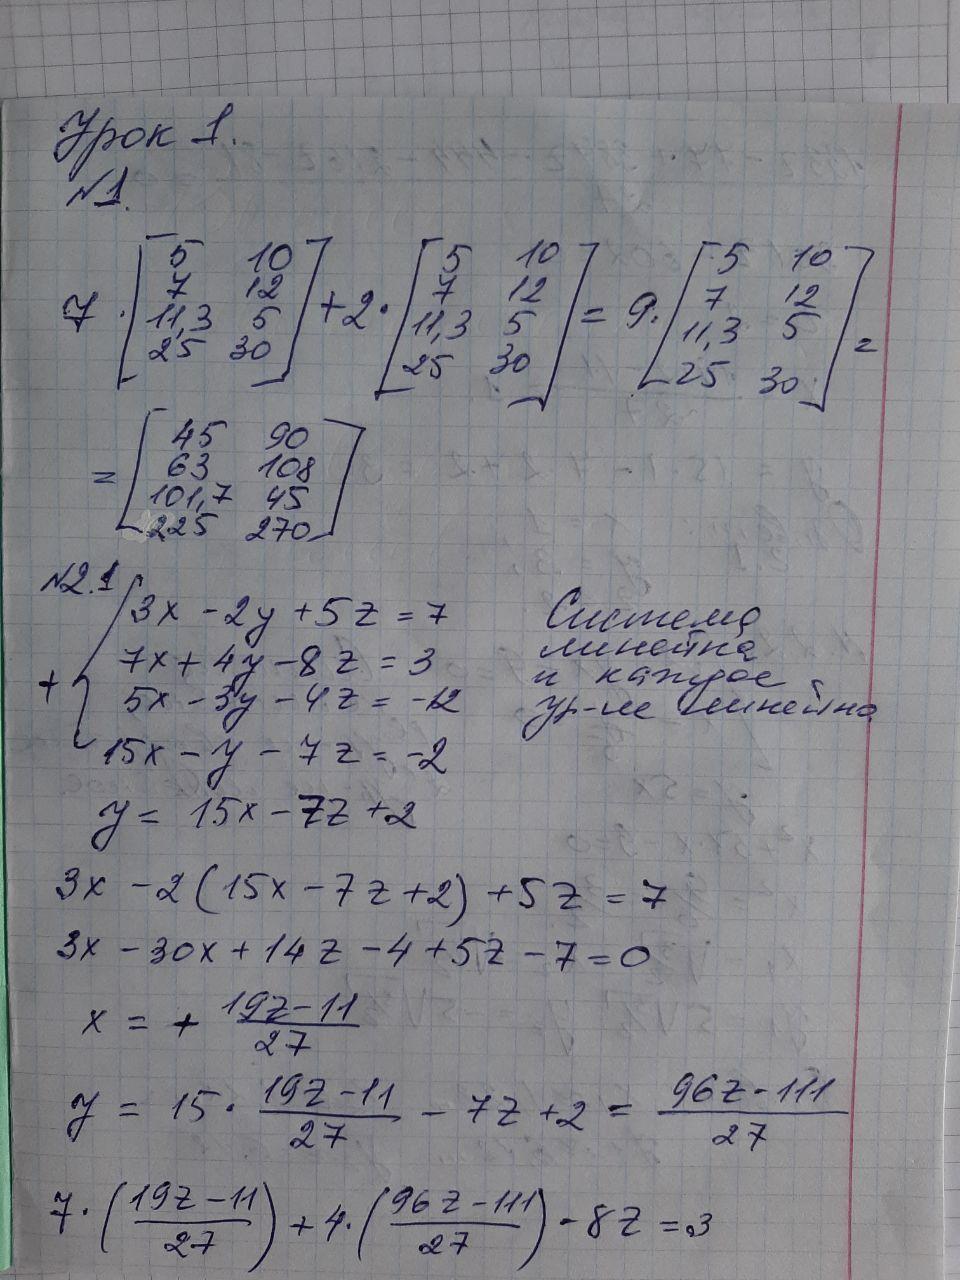 Урок 1.
№1.
7 · [5 10; 7 12; 11,3 5; 25 30] + 2 · [5 10; 7 12; 11,3 5; 25 30] = 9 · [5 10; 7 12; 11,3 5; 25 30] =
= [45 90; 63 108; 101,7 45; 225 270]
№2.1
3x - 2y + 5z = 7
+ 7x + 4y - 8z = 3
5x - 3y - 4z = -12
15x - y - 7z = -2
Система
линейна
и каждое
ур-ие линейно
y = 15x - 7z + 2
3x - 2 (15x - 7z + 2) + 5z = 7
3x - 30x + 14z - 4 + 5z - 7 = 0
x = + (19z - 11)/27
y = 15 · (19z - 11)/27 - 7z + 2 = (96z - 111)/27
7 · ((19z - 11)/27) + 4 · ((96z - 111)/27) - 8z = 3